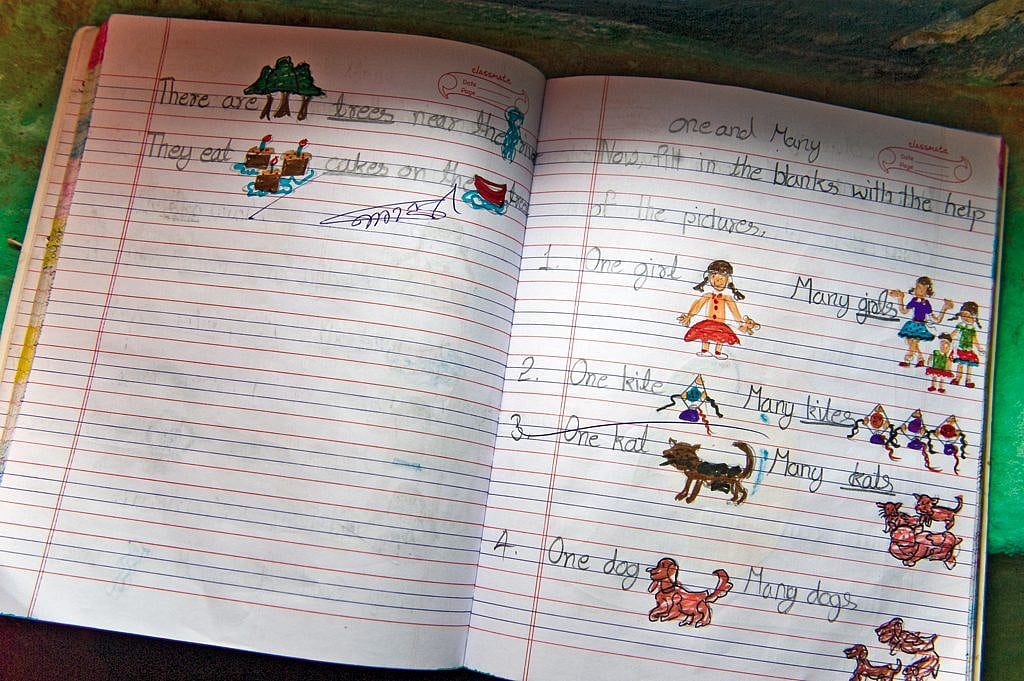 classmate
Date
Page
There are trees near the
They eat cakes on the
classmate
Date
Page
One and Many
Now fill in the blanks with the help
of the pictures.
1. One girl Many girls
2. One kite Many kites
3. One kat Many kats
4. One dog Many dogs